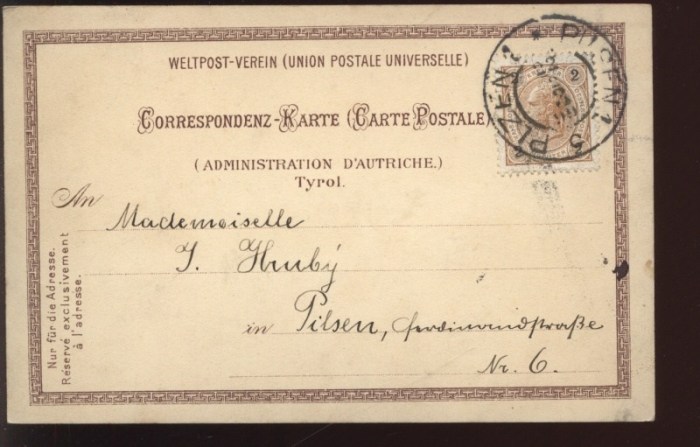 WELTPOST-VEREIN (UNION POSTALE UNIVERSELLE)
CORRESPONDENZ-KARTE (CARTE POSTALE)
(ADMINISTRATION D'AUTRICHE.)
Tyrol.
An
Mademoiselle
in Pilsen, Ferdinandstraße
Nr. 6.
Nur für die Adresse.
Réservé exclusivement
à l'adresse.
PILSEN 1
PLZEŇ 1
5
2